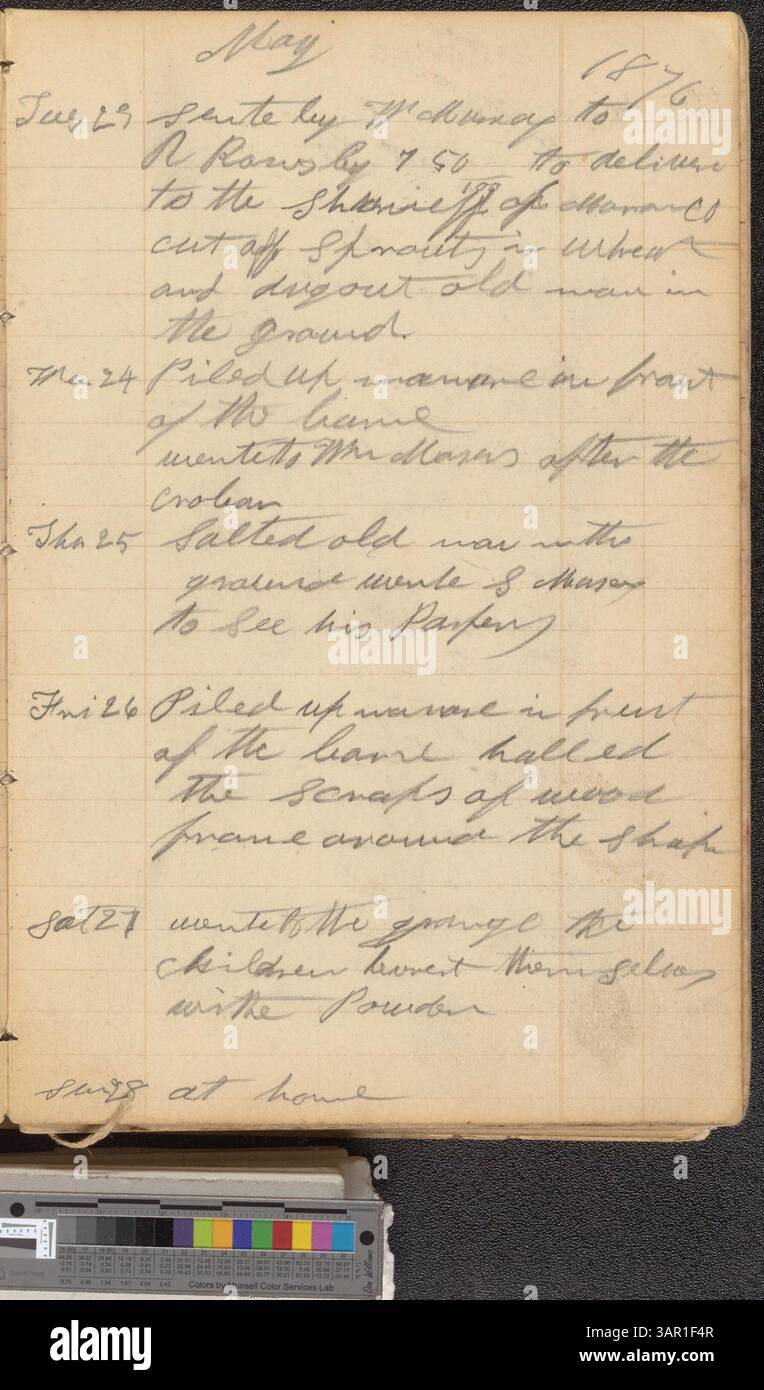 May
1876
Tues 23 sente by Wm Murray to
R Rowsby 7 50 to deliver
to the Sheriff of Marion CO
cut off Sprouts in wheat
and dug out old man in
the ground.
We 24 Piled up manure in front
of the barne
wente to Wm Masers after the
crobar
Thu 25 Salted old man in the
ground wente S Masers
to see his Papers
Fri 26 Piled up manure in frunt
of the barne halled
the scraps of wood
frame around the shop
Sat 27 wente to the grange the
children burnt themselves
withe Powder
Sun 28 at home
alamy
alamy
alamy
alamy
a
a
a
a
Colors by Munsell Color Services Lab
centimeters
alamy
Image ID: 3AR1F4R
www.alamy.com